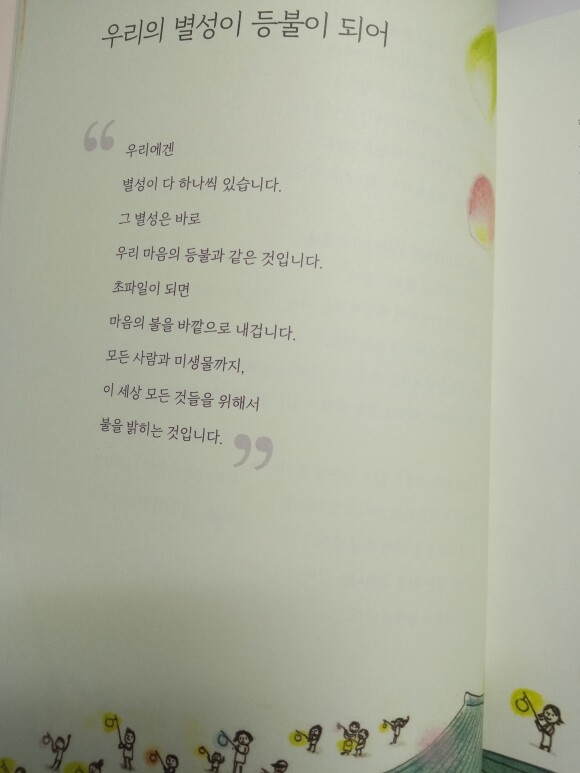 우리의 별성이 등불이 되어
우리에겐
별성이 다 하나씩 있습니다.
그 별성은 바로
우리 마음의 등불과 같은 것입니다.
초파일이 되면
마음의 불을 바깥으로 내겁니다.
모든 사람과 미생물까지,
이 세상 모든 것들을 위해서
불을 밝히는 것입니다.